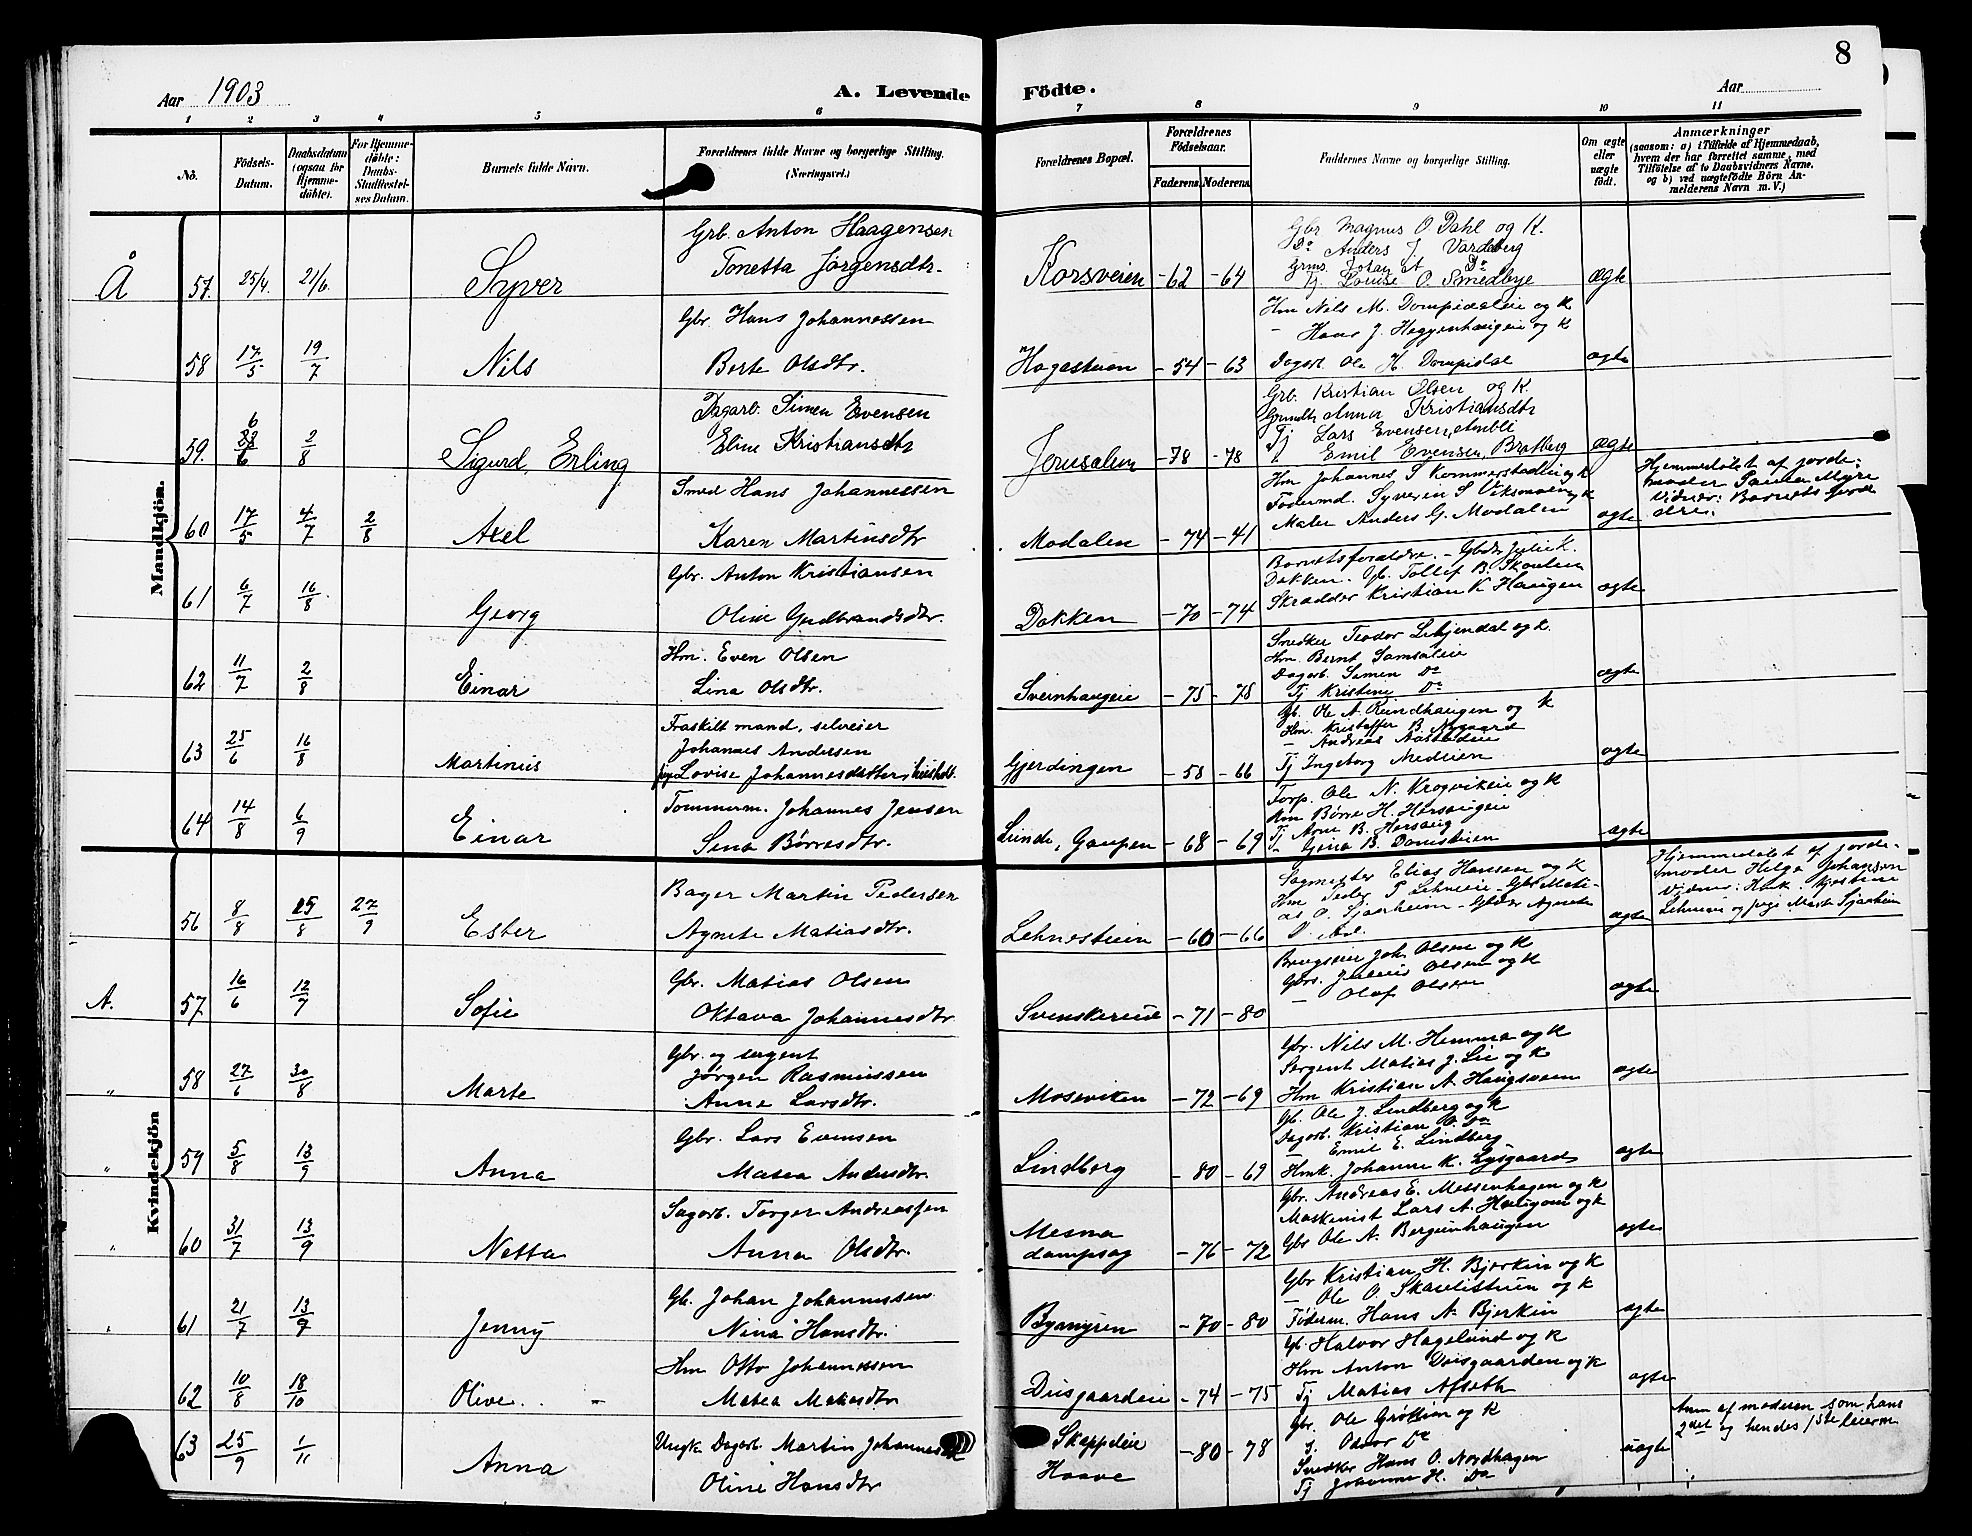 8
Aar 1903
A. Levende
Födte.
Aar
1 2 3 4 5 6 7 8 9 10 11
No.
Födsels-
Datum.
Daabsdatum
(ogsaa for
Hjemme-
döbte).
For Hjemme-
döbte:
Daabs-
Stadfæstel-
ses Datum.
Barnets fulde Navn.
Forældrenes fulde Navne og borgerlige Stilling.
(Næringsvei.)
Forældrenes Bopæl.
Forældrenes
Födselsaar.
Faderens. Moderens.
Faddernes Navne og borgerlige Stilling.
Om ægte
eller
uægte
født.
Anmærkninger
(saasom: a) i Tilfælde af Hjemmedaab,
hvem der har forrettet samme, med
Tilföielse af to Daabsvidners Navne,
og b) ved uægtefödte Börn An-
melderens Navn m. V.)
Mandkjön.
Å 57. 25/4. 21/6. Syver
Grb. Anton Haagensen
Tonetta Jørgensdtr.
Korsveien -62 -64
Gbr Magnus O. Dahl og K.
Do Anders J. Vardeberg
Grms. Johan A Do
Tj. Louise O. Smedbye
ægte
58 17/5 19/7 Nils
Gbr. Hans Johannessen
Berte Olsdtr.
Hagastuen -54 -63
Hm Nils M. Dompidaleie og K
- Hans J. Heggenhaugeie og K
Dagarb. Ole H. Dompidal
ægte
59. 2/8 Sigurd, Erling
Dagarb. Simen Evensen
Eline Kristiansdtr
Jerusalem -78 -78
Grb. Kristian Olsen og K.
Anna Kristiansdtr
Tj Lars Evensen,
Emil Evensen, Bratberg
ægte
60 17/5 4/7 2/8 Axel
Smed Hans Johannessen
Karen Martinsdtr
Modalen -74 -41
Hm Johannes S og K
Syveren S
Maler Anders G. Modalen
ægte
Hjemmedøbt af jorde-
moder Paula Myre
Vidner: Barnets foræl
dre.
61 6/7 16/8 Georg
Gbr. Anton Kristiansen
Oline Gudbrandsdtr.
Dakken -70 -74
Barnets forældre. - Julie K.
Dakken. Gb. Tollef B. Skaulen
Skrædder Kristian K Haugen
ægte
62 11/7 2/8 Einar
Hm. Even Olsen
Lina Olsdtr.
Svernhaugeie -75 -78
Snedker Teodor og K.
Hm. Bernt Samsaleie
Dagarb. Simen Do
Tj Kristine Do
ægte
63 25/6 16/8 Martinius
Fraskilt mand, selveier
Johannes Andersen
pige Lovise Johannesdatter,
Gjerdingen -58 -66
Gb. Ole A. Rundhaugen og K
Hm. Kristoffer B. Nygaard
- Andreas
Tj Ingeborg Medeien
ægte
64 14/8 6/9 Einar
Tømmerm. Johannes Jensen
Sina Børresdtr.
Lunde, Gaupen -68 -69
Forp. Ole N. Krogvikeie og K
Hm Børre H. Hersaugeie
Tj Arne B. Hersaug
- Gina B. Danistuen
ægte
Kvindekjön
56 8/8 25/8 27/9 Ester
Bager Martin Pedersen
Agnete Matiasdtr.
Lehnestuen -60 -66
Sagmester Elias Hansen og K
Hm Peder P Lehneie - Gbr Mati-
as O. Sjaarheim - Agnete
O.
ægte
Hjemmedøbt af jorde-
moder Helga Johansen
Vidner: Hmk. Kjestine
Lehneie og pige Marte Sjaarheim
A. 57 16/6 12/7 Sofie
Gbr. Matias Olsen
Oktava Johannesdtr
Svenskerud -71 -80
Brugseier Joh. Olsen og K
Gbrs. Julius Olsen og K
- Olaf Olsen
ægte
" 58 27/6 30/8 Marte
Gbr. og sergent
Jørgen Rasmussen
Anna Larsdtr.
Moseviken -72 -69
Gbr. Nils M. Hemma og K
Sergent Matias J. Lie og K
Hm Kristian A. Haugsveen
ægte
" 59 5/8 13/9 Anna
Gbr. Lars Evensen
Matea Andersdtr.
Lindberg -80 -69
Gb. Ole J. Lindberg og K
Dagarb. Kristian O. Do
- Emil E. Lindberg
Hmk. Johanne K. Lysgaard
ægte
" 60 31/7 13/9 Netta
Sagarb. Torger Andreassen
Anna Olsdtr.
Mesna
dampsag -76 -72
Gbr. Andreas E. Messenhagen og K
Maskinist Lars A. Haugom og K
Gbr Ole A. Bergunhaugen
ægte
" 61 21/7 13/9 Jenny
Gb. Johan Johannessen
Nina Hansdtr.
Byamyren -70 -80
Gbr Kristian H. Bjerkin og K
- Ole O. Skauelistuen og K
Føderm. Hans A. Bjerkin
ægte
62 10/8 18/10 Olive.
Hm Otto Johannessen
Matea Matiasdtr
Diisgaardeie -74 -75
Gb. Halvor Hagelund og K
Hm Anton Diisgaarden og K
Tj Matias Afseth
ægte
63 25/9 1/11 Anna
Ungk. Dagarb. Martin Johannes
Oline Hansdtr
Skappeleie
Haave -80 -78
Gbr. Ole Grøtlien og K
Oddvar Do
Snedker Hans O. Nordhagen
Tj Johanne H. Do
uægte
Anm af moderen som hans
2det og hendes 1ste leierm